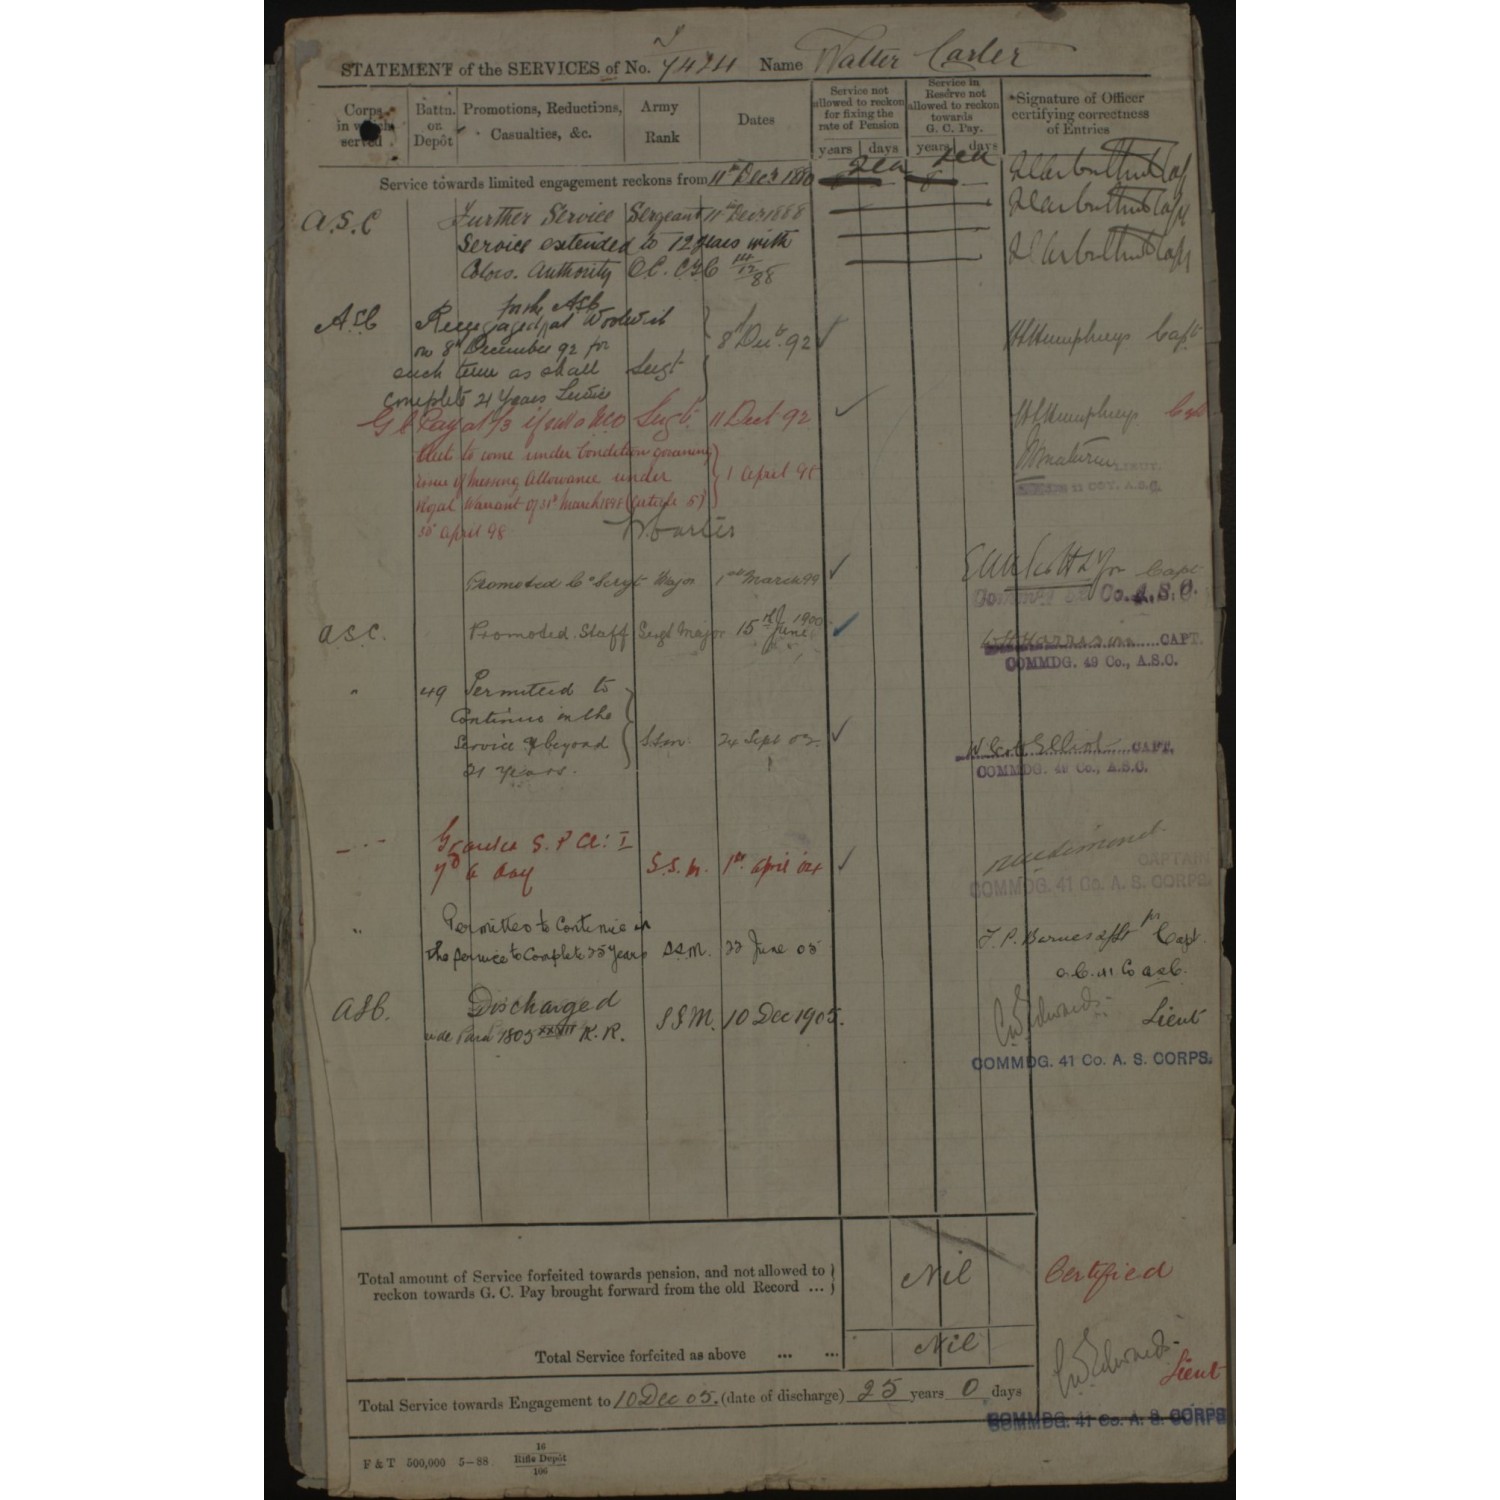 STATEMENT of the SERVICES of No. T/7424 Name Walter Carter
Corps in which served
Battn. or Depôt
Promotions, Reductions, Casualties, &c.
Army Rank
Dates
Service not allowed to reckon for fixing the rate of Pension
years days
Service in Reserve not allowed to reckon towards G. C. Pay.
years days
*Signature of Officer certifying correctness of Entries
Service towards limited engagement reckons from 11th Decr 1880
A.S.C Further Service Sergeant 11th Decr 1888
Service extended to 12 years with
Colors. Authority O.C.
ASC Reengaged at Woolwich
for the ASC
on 8th December 92 for
such term as shall Sergt 8 Decr. 92 H Humphreys Capt
complete 21 years Service
G C Pay at 1/3 Sergt 11 Decr 92 H Humphreys Capt
Elect to come under Condition governing
issue of Messing Allowance under 1 April 98
LIEUT.
11 COY. A.S.C.
Royal Warrant of 31st March 1898 (Article 5)
30 April 98
W Carter
Promoted Co Sergt Major 1st March 99 Capt
Co. A.S.C.
A.S.C. Promoted Staff Sergt Major 15th June 1900 W H Harrison CAPT.
COMMDG. 49 Co., A.S.C.
" 49 Permitted to
Continue in the
Service beyond S.S.M. 24 Sept 02. W Scott Elliot CAPT.
21 Years. COMMDG. 49 Co., A.S.C.
Granted S. P Cl: I
7d a day S.S.M. 1st April 04
CAPTAIN
COMMDG. 41 Co. A. S. CORPS.
" Permitted to Continue in
the service to Complete 25 Years S.S.M. 22 June 05 F. P. Barnes Lt for Capt.
O.C. 41 Co ASC.
ASC. Discharged
vide Para 1805 XXVII K.R. SSM. 10 Dec 1905. Edwards Lieut
COMMDG. 41 Co. A. S. CORPS.
Total amount of Service forfeited towards pension, and not allowed to
reckon towards G. C. Pay brought forward from the old Record ... Nil Certified
Total Service forfeited as above ... ... Nil
Edwards Lieut
Total Service towards Engagement to 10 Dec 05. (date of discharge) 25 years 0 days
COMMDG. 41 Co. A. S. CORPS
F & T 500,000 5—88
16
Rifle Depôt
106